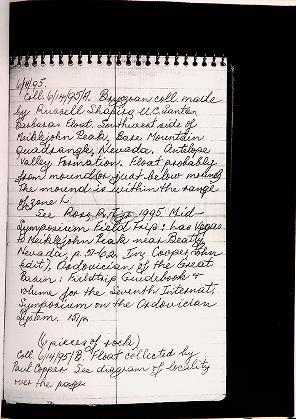 6/14/95.
Coll. 6/14/95A. Bryozoan coll. made
by Russell Shapiro, U.C. Santa
Barbara. Float. Southwest side of
Meiklejohn Peak, Bare Mountain
Quadrangle, Nevada. Antelope
Valley Formation. Float probably
from mound or just below mound.
The mound is within the range
of zone L.
See Ross, R. J. Jr. 1995 Mid-
Symposium Field Trip: Las Vegas
to Meiklejohn Peak near Beatty,
Nevada, p. 51-62. In: Cooper, John
(edit.), Ordovician of the Great
Basin: Fieldtrip Guidebook &
volume for the Seventh Internat.
Symposium on the Ordovician
System. 151p.
(6 pieces of rock)
Coll. 6/14/95B. Float collected by
Paul Copper. See diagram of locality
over the page